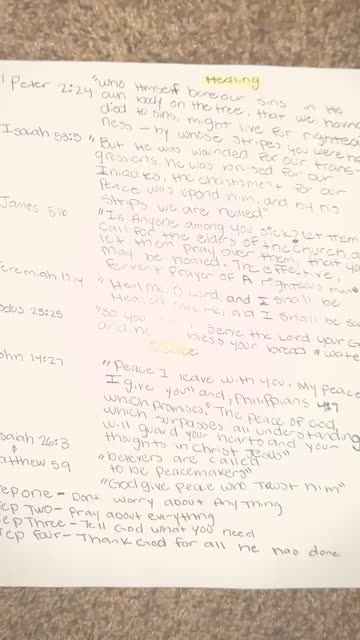 Healing
1 Peter 2:24 "who Himself bore our sins in His
own body on the tree, that we, having
died to sins, might live for righteous
ness - by whose stripes you were
Isaiah 53:5 "But He was wounded for our trans-
gressions, he was bruised for our
Iniquities, the chastsment for our
Peace was upond him, and by his
Strips we are healed"
James 5:16 "Is Anyone among you sick? Let them
call for the elders of the church, a
let them pray over them, that you
may be healed. The effective,
fervent prayer of A righteous man"
eremiah 17:14 "Heal me, O Lord, and I shall be
Healed me, and I shall be sa
odus 23:25 "So you Serve the Lord your G
and he bless your bread & wate
Peace
ohn 14:27 "Peace I leave with you, My peace
I give you" and, Philippians 4:7
which promises, "The peace of God
which surpasses all understanding
will guard your heart and your
thoughts in Christ Jesus"
saiah 26:3 "believers are called
atthew 5:9 to be peacemakers"
"God give peace who trust him"
tep one - Dont worry about Anything
ep Two - Pray about everything
ep Three - Tell God what you need
ep Four - Thank God for all he has done